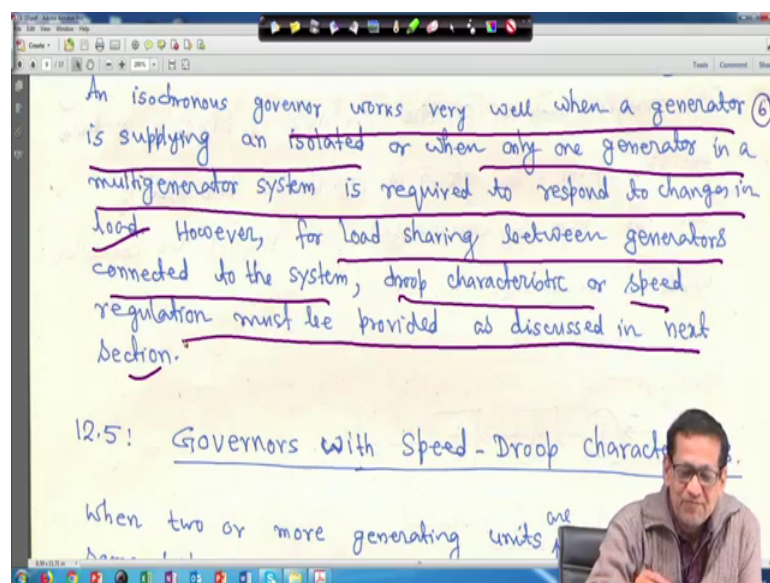 File Edit View Window Help
Create
Tools Comment
An isochronous governor works very well when a generator ⑥
is supplying an isolated or when only one generator in a
multigenerator system is required to respond to changes in
load. However, for load sharing between generators
connected to the system, droop characteristic or speed
regulation must be provided as discussed in next
section.
12.5! Governors with Speed-Droop
When two or more generating units are